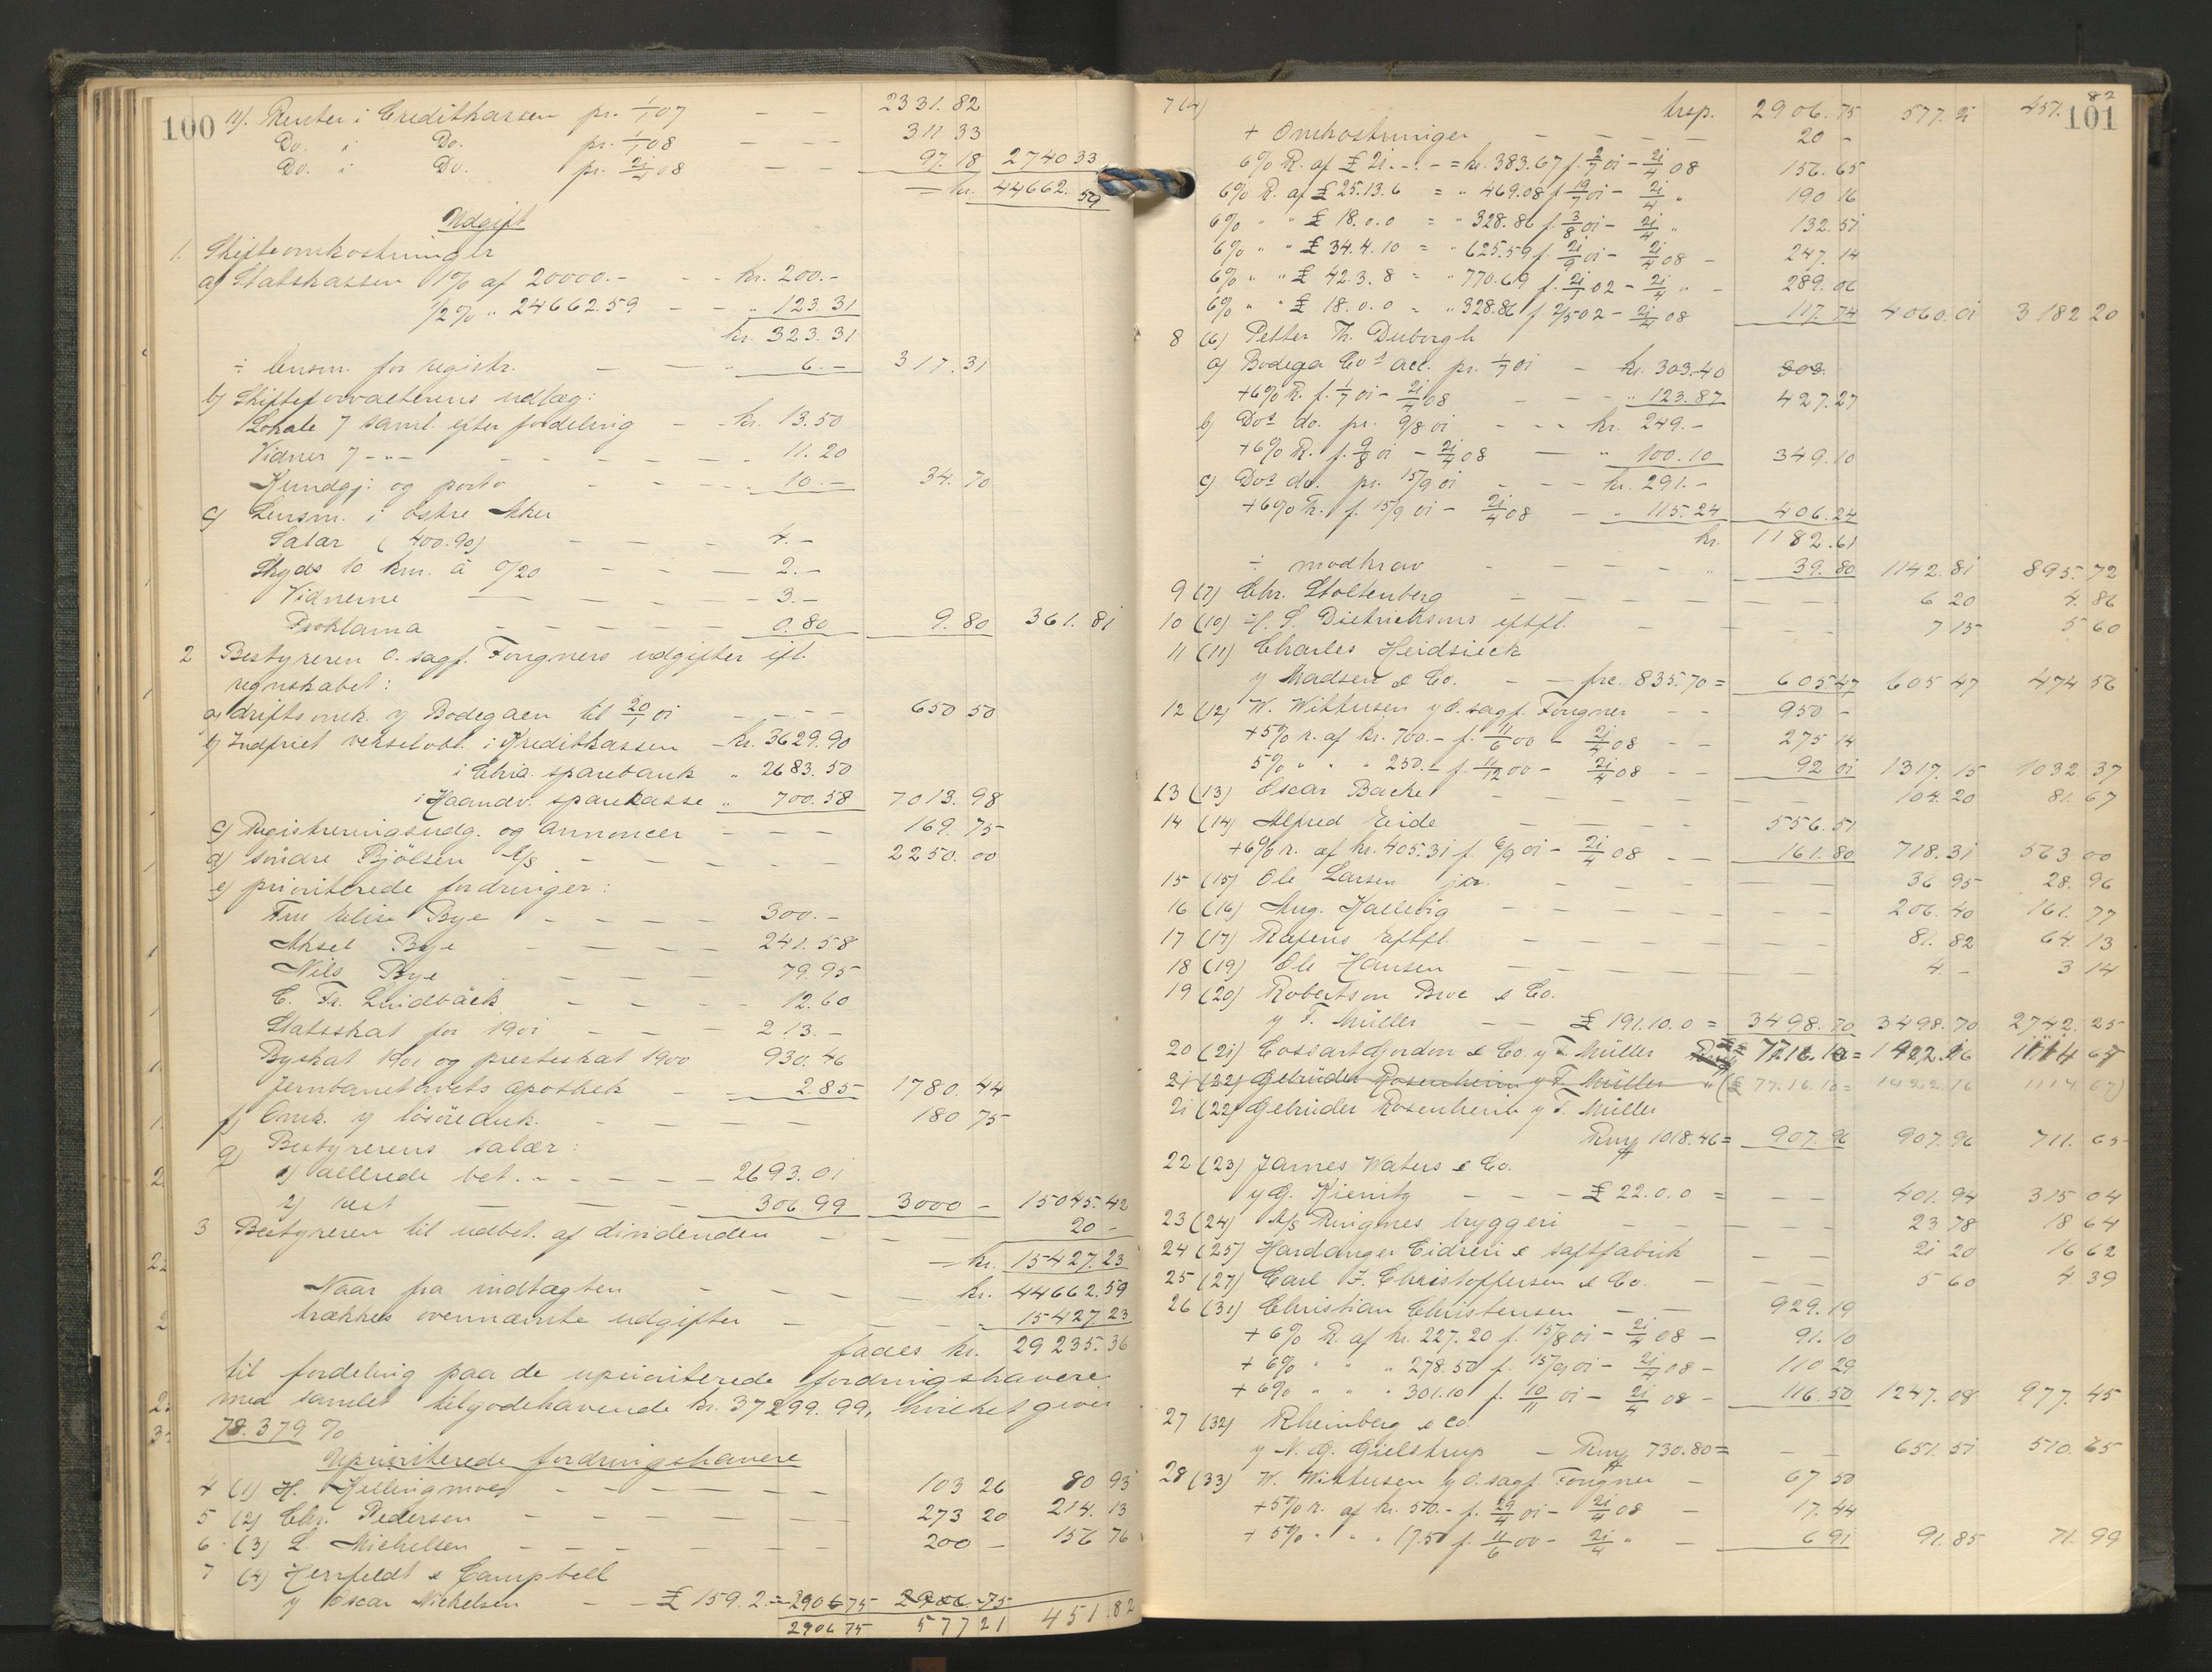 100
11). Renter i Creditkassen pr. 1/1 07 — — 2331.82
Do. i Do. pr. 1/1 08 — — 311 33
Do. i Do. pr. 21/4 08 — — 97.18 2740 33
= kr. 44662.59
Udgift
1. Skifteomkostninger
a) Statskassen 1% af 20000.- - - kr. 200.-
1/2% " 24662.59 - - " 123.31
kr. 323.31
÷ lensm. for registr. — — " 6.- 317.31
b) Skifteforvalterens udlæg:
Lokale 7 saml. efter fordeling - - kr. 13.50
Vidner 7 -"- - - - - - 11.20
Kundgj. og porto - - - - " 10.- 34.70
c) Lensm. i østre Aker
Salær (400.90) - - - 4.-
Skyds 10 km. à 0/20 - - - 2.-
Vidnerne - - - - 3.-
Proklama - - - - 0.80 9.80 361.81
2 Bestyreren O. sagf. Fougners udgifter ifl.
regnskabet:
a) driftsomk. v Bodegaen til 20/1 01 - - - 650 50
b) Indfriet vekselobl. i Kreditkassen - kr. 3629.90
i Chria. sparebank " 2683.50
i Haandv. sparekasse " 700.58 7013.98
c) Registreringsudg. og annoncer - - - 169.75
d) søndre Bjölsen A/S - - - - - 2250.00
e) prioriterede fordringer:
Fru Elise Bye - - - 300.-
Aksel Bye - - - - 241.58
Nils Bye - - - - 79.95
C. Fr. Lindbäck - - - 12.60
Statsskat for 1901 - - - 213.-
Byskat 1901 og presteskat 1900 930.46
Jernbanetorvets apothek - - 2.85 1780.44
f) Omk. v løsöreauk. - - - - - 180 75
g) Bestyrerens salær:
1) allerede bet. - - - - 2693.01
2) rest — — — 306.99 3000 - 15045.42
3 Bestyreren til udbet. af dividenden - - 20 -
= kr. 15427.23
Naar fra indtægten - - - - kr. 44662.59
trækkes ovennævnte udgifter - - - " 15427.23
fades kr. 29235.36
til fordeling paa de uprioriterede fordringshavere
med samlet tilgodehavende kr. 37299.99, hvilket giver
78.379 %
Uprioriterede fordringshavere
4 (1) H. Kellingmoe - - - - - 103 26 80 93
5 (2) Chr. Pedersen - - - - - 273 20 214.13
6 (3) L. Michelsen - - - - - 200 - 156 76
7 (4) Herrfeldt & Campbell
v Oscar Nickelsen - - £ 159.2.- = 2906 75 2906.75
2906 75 577 21 451.82
101
7 (4) trsp. 2906.75 577.21 451.82
+ Omkostninger - - - - 20 -
6% R. af £ 21.-.- = kr. 383.67 f. 2/7 01 - 21/4 08 156.65
6% R. af £ 25.13.6 = " 469.08 f. 19/7 01 - 21/4 " 190 16
6% " " £ 18.0.0 = " 328.86 f. 3/8 01 - 21/4 " 132.51
6% " " £ 34.4.10 = " 625.59 f. 21/9 01 - 21/4 08 - 247.14
6% " " £ 42.3.8 = " 770.69 f. 21/1 02 - 21/4 " - 289.06
6% " " £ 18.0.0 = " 328.86 f. 2/5 02 - 21/4 08 117.74 4060.01 3182 20
8 (6) Petter Th. Duborgh
a) Bodega Cos acc. pr. 1/7 01 - kr. 303.40 303.
+6% R. f. 1/7 01 - 21/4 08 - - - " 123.87 427.27
b) Dos do. pr. 9/8 01 - - - kr. 249.-
+6% R. f. 9/8 01 - 21/4 08 — " 100.10 349.10
c) Dos do. pr. 15/9 01 - - - kr. 291.-
+6% R. f. 15/9 01 - 21/4 08 - " 115.24 406.24
kr. 1182.61
÷ modkrav - - - - " 39.80 1142.81 895.72
9 (7) Chr. Stoltenberg - - - - - 6 20 4.86
10 (10) H. S. Dietrichsons eftfl. - - - 7 15 5 60
11 (11) Charles Heidsieck
v Madsen & Co. - - frc. 835.70 = 605.47 605 47 474 56
12 (12) W. Wittusen v O. sagf. Fougner - - 950 -
+5% r. af kr. 700.- f. 11/6 00 - 21/4 08 - - 275 14
5% " " " 250.- f. 11/12 00 - 21/4 08 - - 92 01 1317.15 1032 37
13 (13) Oscar Backe - - - - - 104.20 81.67
14 (14) Alfred Eide - - - - 556.51
+6% r. af kr. 405.31 f. 6/9 01 - 21/4 08 - - 161.80 718.31 563 00
15 (15) Ole Larsen jor. - - - - 36 95 28.96
16 (16) Aug. Kallevig - - - - - 206.40 161.77
17 (17) Rafens Eftfl. - - - - - 81.82 64.13
18 (19) Ole Hansen - - - - - 4.- 3 14
19 (20) Robertson Broe & Co.
v F. Müller - - £ 191.10.0 = 3498.70 3498.70 2742.25
20 (21) Cossart Gordon & Co. v F. Müller £ 77.16.10 = 1422.16 1114 67
21 (22) Gebrüder Rosenheim v F. Müller " (£ 77.16.10 = 1422.16 1114 67)
21 (22) Gebrüder Rosenheim v F. Müller
Rmk 1018.46 = 907.96 907.96 711.65
22 (23) James Waters & Co.
v G. Kiemitz - - - £ 22.0.0 = - - 401.94 315 04
23 (24) A/S Ringnes bryggeri - - - - 23 78 18 64
24 (25) Hardanger Cidreri & saftfabrik - - 21 20 16 62
25 (27) Carl F. Christoffersen & Co. - - - 5 60 4.39
26 (31) Christian Christensen - - 929.19
+ 6% R. af kr. 227.20 f. 15/8 01 - 21/4 08 - 91.10
+ 6% " " " 278.50 f. 15/9 01 - 21/4 08 - 110 29
+ 6% " " " 301.10 f. 10/11 01 - 21/4 08 - 116.50 1247.08 977.45
27 (32) Rheinberg & Co
v N. G. Gjelstrup - Rmk 730.80 = - - 651.51 510.65
28 (33) W. Wittusen v O. sagf. Fougner - 67 50
+5% r. af kr. 50.- f. 29/4 01 - 21/4 08 - 17.44
+ 5% " " " 17.50 f. 11/6 00 - 21/4 " - 6 91 91.85 71.99